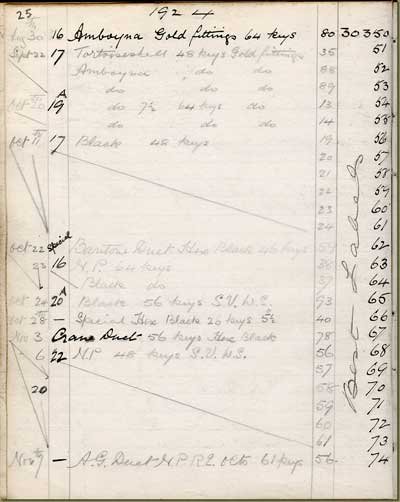 25 1924
Aug 30 16 Amboyna Gold fittings 64 keys 80 30350
Sept 22 17 Tortoiseshell 48 keys Gold fittings 35 51
Amboyna do do 88 52
do do do 89 53
Oct 19 A do 7½ 64 keys do 13 54
do do do 14 55
Oct 17 Black 48 keys 19 56
20 57
21 58
22 59
23 60
24 61
Oct 22 Special Baritone Duet Hex Black 46 keys 62
23 16 N.P. 64 keys 63
Black do 64
Oct 24 20 A Black 56 keys S.V. W.C. 93 65
Oct 28 — Special Hex Black 20 keys 5½ 40 66
Nov 3 Crane Duet 56 keys Hex Black 78 67
6 22 N.P. 48 keys S.V. W.S. 56 68
57 69
20 58 70
59 71
60 72
61 73
Nov 7 — A.G. Duet N.P. R.E. 61 keys 56 74
Best Labels